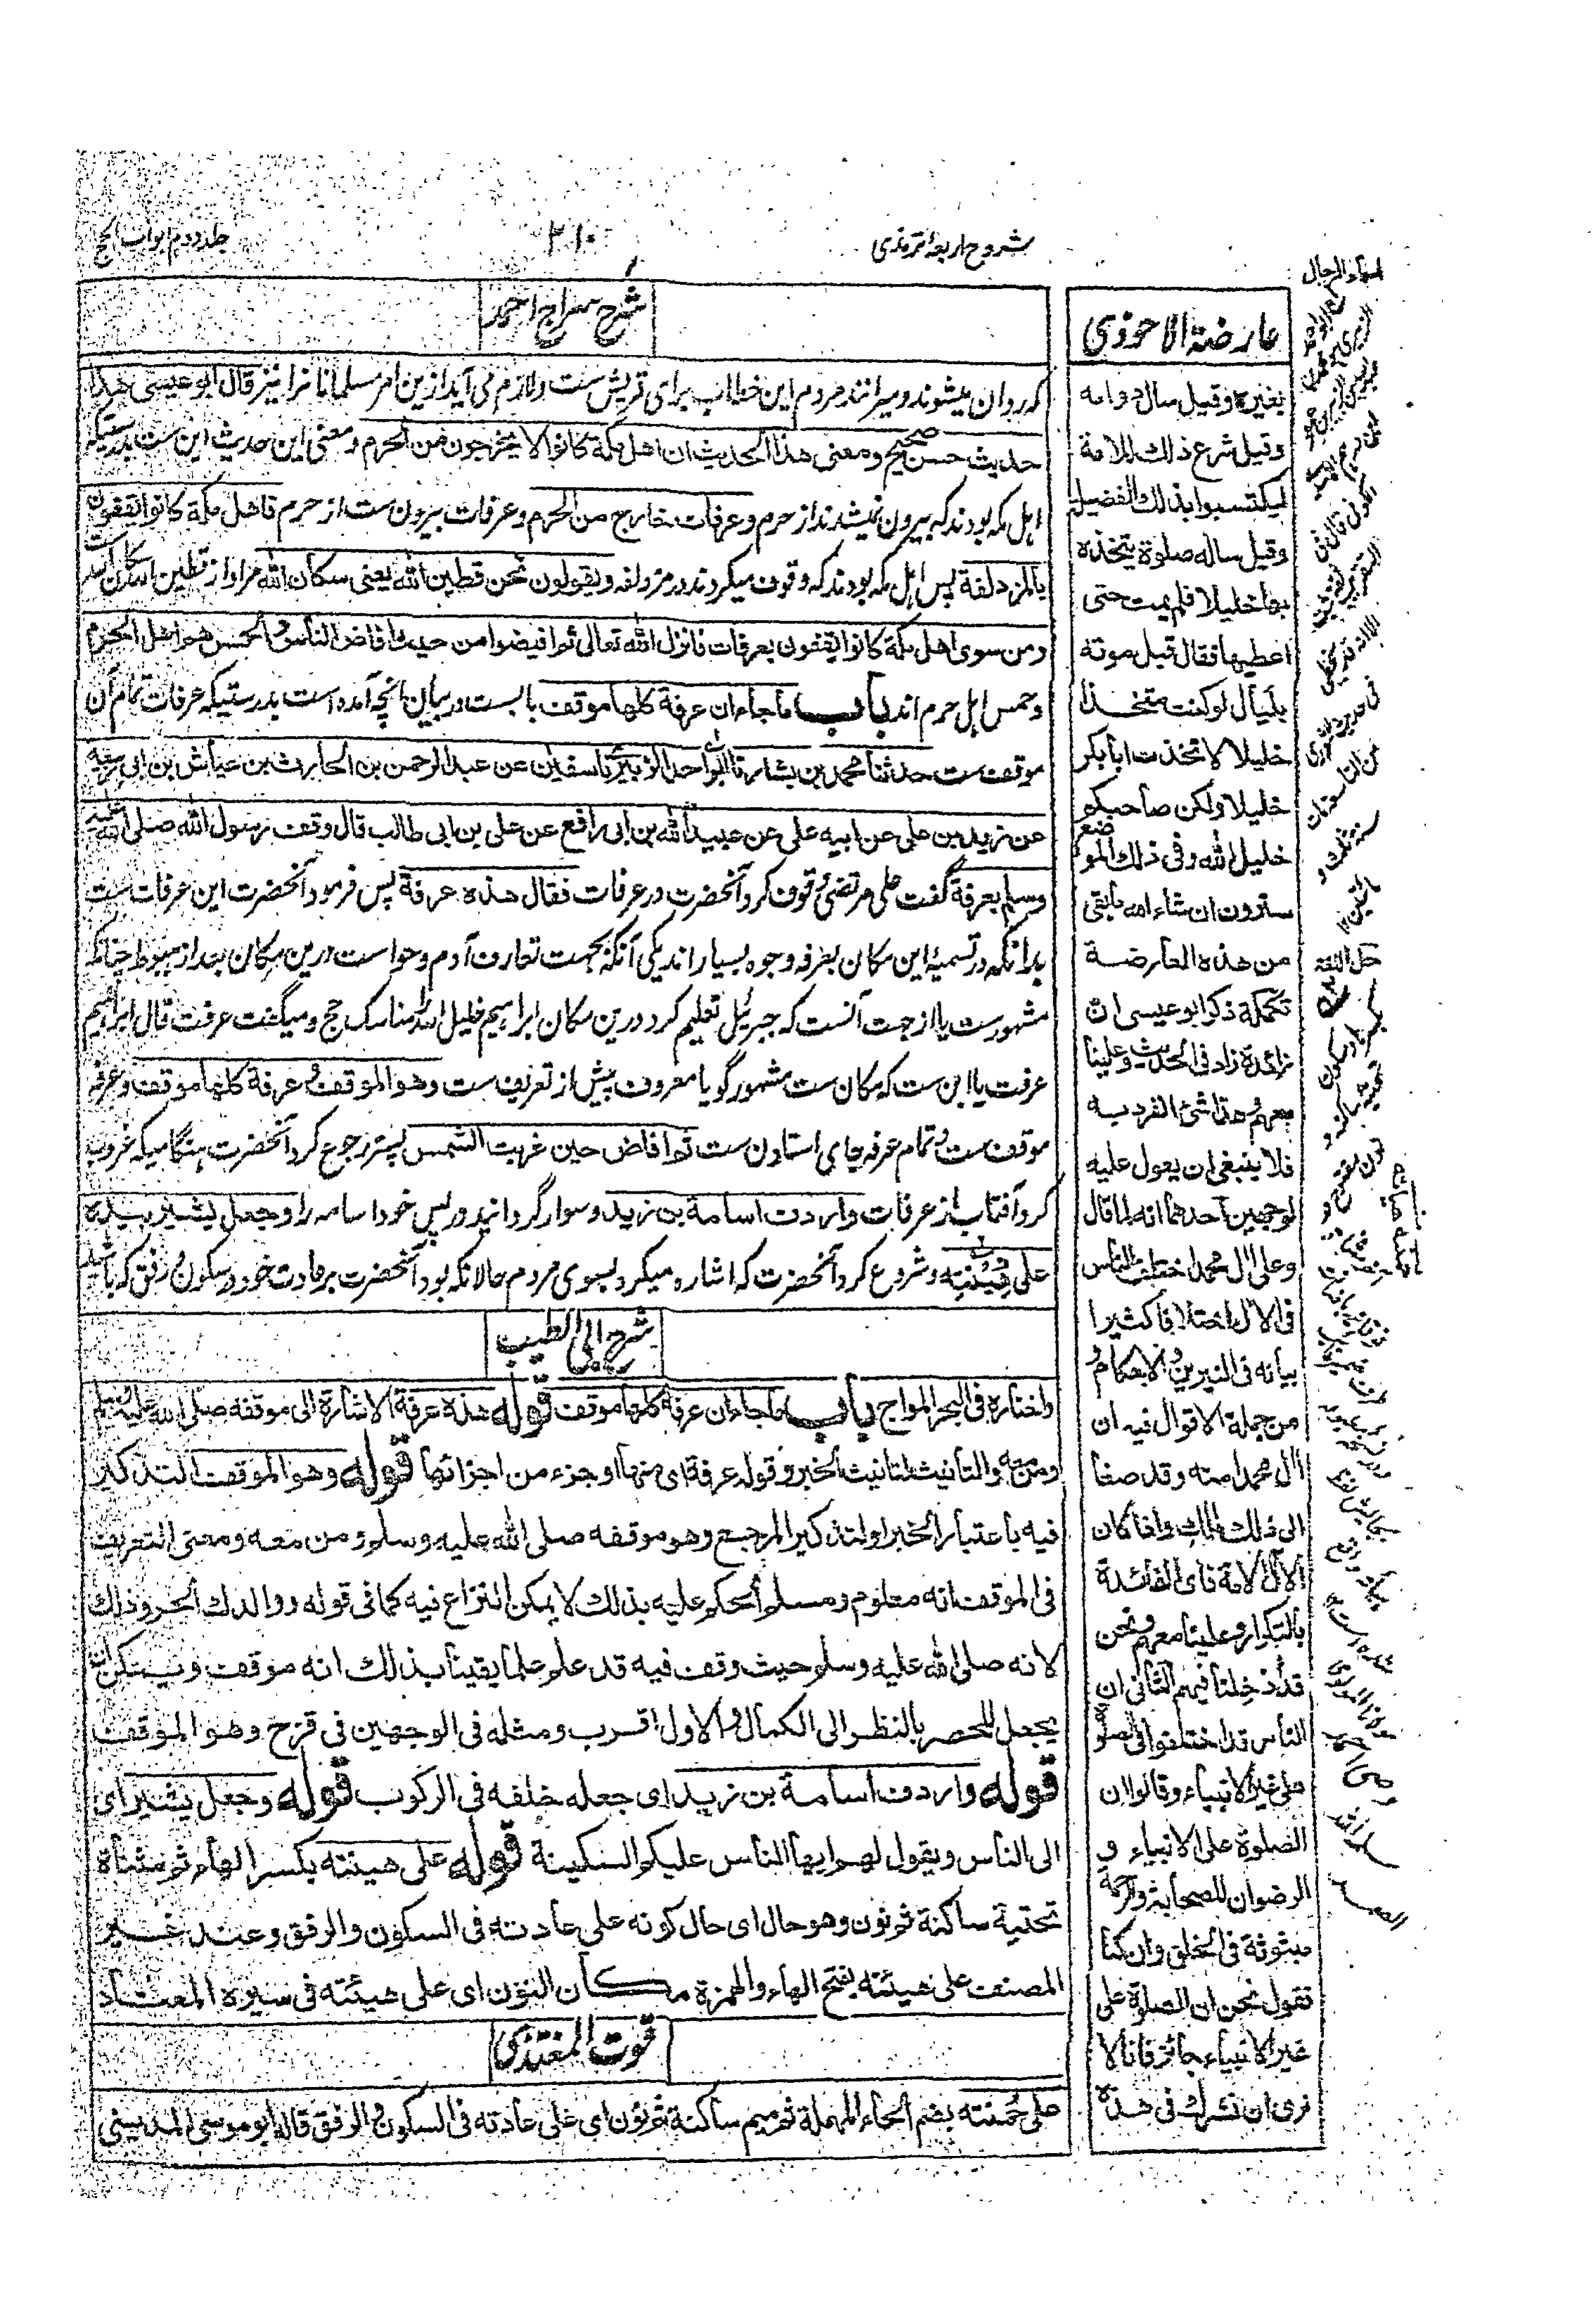 شروح اربعۂ ترمذی
٢١٠
جلد دوم ابواب الحج
شرح سراج احمد
که روان میشوند و میرانند مردم این خطاب برای قریش ست ولازم می آید ازین امر مسلمانانرا نیز قال ابو عیسی هذا
حدیث حسن صحیح ومعنی هذا الحدیث ان اهل مکة کانوا لا یخرجون من الحرم ومعنی این حدیث این ست بدرستیکه
اہل مکہ بودند که بیرون نمیشدند از حرم وعرفات خارج من الحرم وعرفات بیرون ست از حرم فاهل مکة کانوا یقفون
بالمزدلفة پس اہل مکہ بودند که وقوف میکردند در مزدلفه ویقولون نحن قطین الله یعنی سکان الله مراد از قطین الله سکان الله ست
ومن سوی اهل مکة کانوا یقفون بعرفات فانزل الله تعالی ثم افیضوا من حیث افاض الناس والحمس هو اهل الحرم
وحمس اہل حرم اند باب ما جاء ان عرفة کلها موقف بابست در بیان آنچه آمده است بدرستیکه عرفات تمام آن
موقف ست حدثنا محمد بن بشار نا ابو احمد الزبیری نا سفین عن عبد الرحمن بن الحارث بن عیاش بن ابی ربیعه
عن زید بن علی عن ابیه علی عن عبید الله بن ابی رافع عن علی بن ابی طالب قال وقف رسول الله صلی الله علیه
وسلم بعرفة گفت علی مرتضی وقوف کرد آنحضرت در عرفات فقال هذه عرفة پس فرمود آنحضرت این عرفات ست
بدانکه در تسمیۂ این مکان بعرفه وجوه بسیار اند یکی آنکه بجهت تعارف آدم وحوا ست درین مکان بعد از هبوط چنانکه
مشهورست یا از جهت آنست که جبرئیل تعلیم کرد درین مکان ابراهیم خلیل الله را مناسک حج ومیگفت عرفت قال ابراهیم
عرفت یا این ست که مکان ست مشهور گویا معروف پیش از تعریف ست وهو الموقف وعرفة کلها موقف وعرفه
موقف ست وتمام عرفه جای استادن ست ثم افاض حین غربت الشمس پستر رجوع کرد آنحضرت هنگامیکه غروب
کرد آفتاب از عرفات واردف اسامة بن زید وسوار گردانید در پس خود اسامه را وجعل یشیر بیده
علی هینته وشروع کرد آنحضرت که اشاره میکرد بسوی مردم حالانکه بود آنحضرت بر عادت خود در سکون ورفق که باشد
شرح ابی الطیب
واختاره فی البحر المواج باب ما جاء ان عرفة کلها موقف قوله هذه عرفة الاشارة الی موقفه صلی الله علیه وسلم
ومن معه والتانیث لتانیث الخبر وقوله عرفة ای منها او جزء من اجزائها قوله وهو الموقف التذکیر
فیه باعتبار الخبر او لتذکیر المرجع وهو موقفه صلی الله علیه وسلم ومن معه ومعنی التعریف
فی الموقف انه معلوم ومسلم الحکم علیه بذلک لا یمکن النزاع فیه کما فی قوله ووالدک الحر وذلک
لانه صلی الله علیه وسلم حیث وقف فیه قد علم علما یقینا بذلک انه موقف ویمکن ان
یجعل للحصر بالنظر الی الکمال والاول اقرب ومثله فی الوجهین فی قزح وهو الموقف
قوله واردف اسامة بن زید ای جعله خلفه فی الرکوب قوله وجعل یشیر ای
الی الناس ویقول لهم ایها الناس علیکم السکینة قوله علی هینته بکسر الهاء ثم مثناة
تحتیة ساکنة ثم نون وهو حال ای حال کونه علی عادته فی السکون والرفق وعند غیر
المصنف علی هیئته بفتح الهاء والهمزة مکان النون ای علی هیئته فی سیره المعتاد
قوت المغتذی
علی حمنته بضم الحاء المهملة ثم میم ساکنة ثم نون ای علی عادته فی السکون والرفق قاله ابو موسی المدینی
عارضة الاحوذی
بغیره وقیل سال دوامه
وقیل شرع ذلک للامة
لیکتسبوا بذلک الفضیلة
وقیل ساله صلوة یتخذه
بها خلیلا فلم یمت حتی
اعطیها فقال قبل موته
بلیال لو کنت متخذا
خلیلا لاتخذت ابا بکر
خلیلا ولکن صاحبکم
خلیل الله وفی ذلک الموضع
سترون ان شاء الله ما بقی
من هذه العارضة
تکملة ذکر ابو عیسی ان
زائدة زاد فی الحدیث وعلینا
معهم وهذا شئ انفرد به
فلا ینبغی ان یعول علیه
لوجهین احدهما انه لما قال
وعلی ال محمد اختلف الناس
فی الال اختلافا کثیرا
بیانه فی النیرین والاحکام و
من جملة الاقوال فیه ان
ال محمد امته وقد صغا
الی ذلک مالک واذا کان
الال الامة فای الفائدة
بالتکرار وعلینا معهم ونحن
قد دخلنا فیهم الثانی ان
الناس قد اختلفوا فی الصلوة
علی غیر الانبیاء وقالوا ان
الصلوة علی الانبیاء و
الرضوان للصحابة والرحمة
مبثوثة فی الخلق وان کنا
نقول نحن ان الصلوة علی
غیر الانبیاء جائز فانا لا
نری ان نشرک فی هذه
اسماء الرجال
حل اللغة